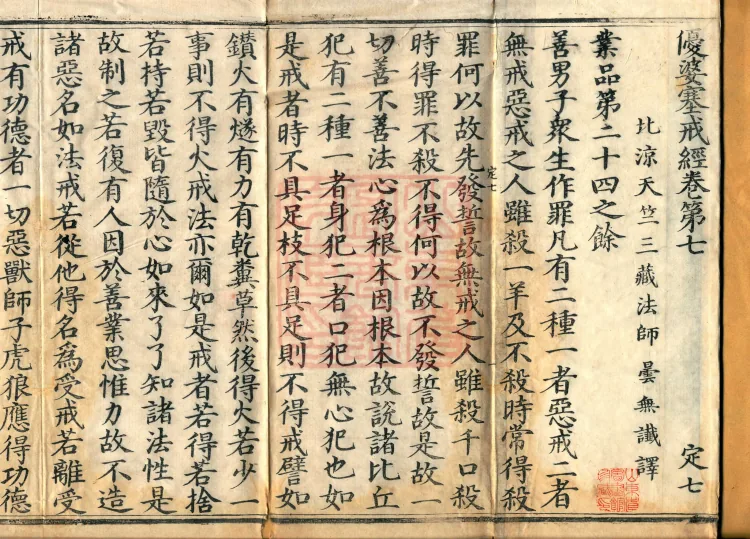 優婆塞戒經卷第七
定七
比涼天竺三藏法師曇無讖譯
業品第二十四之餘
善男子衆生作罪凡有二種一者惡戒二者
無戒惡戒之人雖殺一羊及不殺時常得殺
罪何以故先發誓故無戒之人雖殺千口殺
定七
時得罪不殺不得何以故不發誓故是故一
切善不善法心為根本因根本故說諸比丘
犯有二種一者身犯二者口犯無心犯也如
是戒者時不具足枝不具足則不得戒譬如
鑚火有燧有力有乾糞草然後得火若少一
事則不得火戒法亦爾如是戒者若得若捨
若持若毀皆隨於心如來了了知諸法性是
故制之若復有人因於善業思惟力故不造
諸惡名如法戒若從他得名為受戒若離受
戒有功德者一切惡獸師子虎狼應得功德